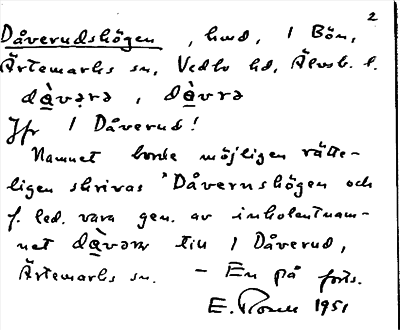 2
Dåverudshögen, hmd, 1 Bön,
Ärtemarks sn, Vedbo hd, Älvsb. l.
dàvərə, dàvrə
Jfr 1 Dåverud!
Namnet borde möjligen rätte-
ligen skrivas *Dåvernshögen och
f. led. vara gen. av inkolentnam-
net dàvərn till 1 Dåverud,
Ärtemarks sn. – En på forts.
E. 1951